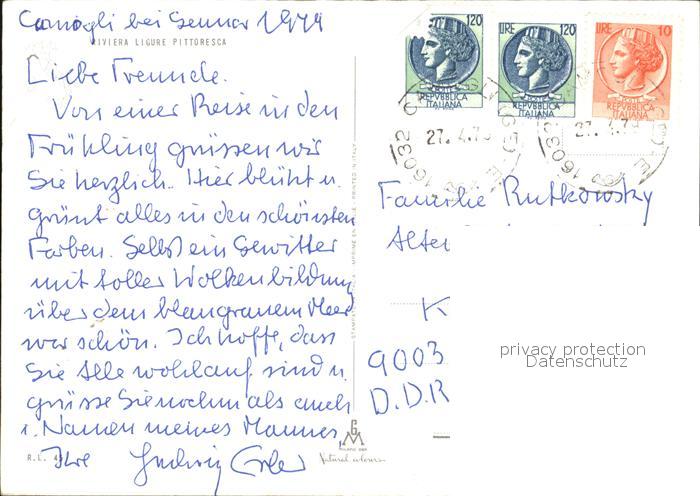 Camogli bei Gennar 1979
RIVIERA LIGURE PITTORESCA
Liebe Freunde.
Von einer Reise in den
Frühling grüssen wir
Sie herzlich. Hier blüht u.
grünt alles in den schönsten
Farben. Selbst ein Gewitter
mit toller Wolkenbildung
über dem blaugrauen Meer
war schön. Ich hoffe, dass
Sie Alle wohlauf sind u.
grüsse Sie nochmals auch
i. Namen meines Mannes,
Ihre
R.E.
120
REPVBBLICA
ITALIANA
LIRE 120
REPVBBLICA
ITALIANA
LIRE 10
REPVBBLICA
ITALIANA
16032
27.4.79
16032
27.4.79
PRINTED IN ITALY
Familie Rutkowsky
Alte
K
9003
D.D.R
privacy protection
Datenschutz
G
M
Natural colours